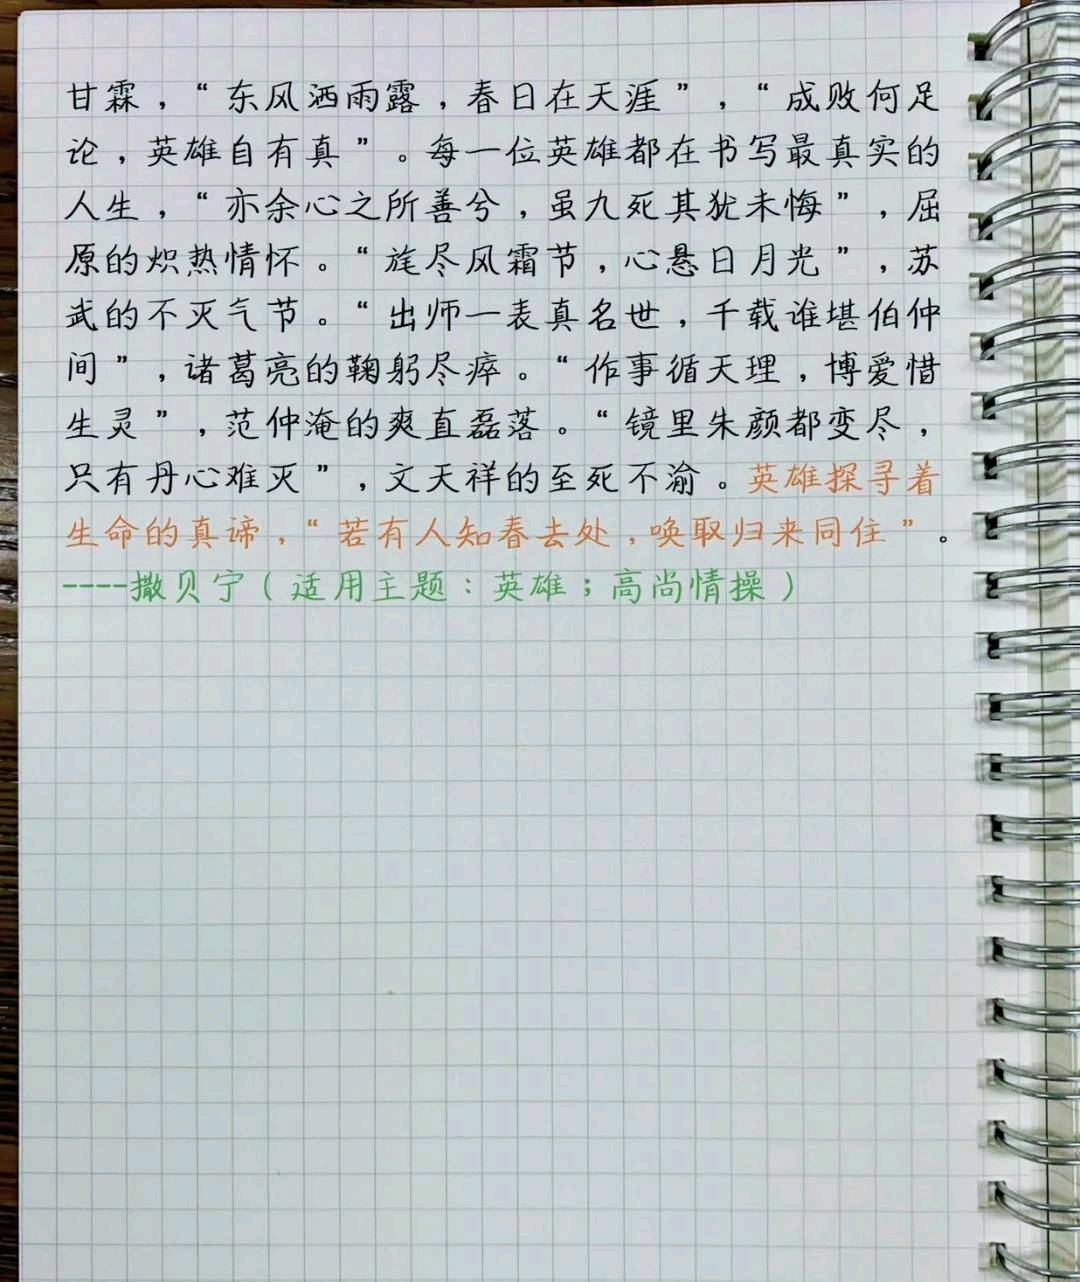 甘霖，“东风洒雨露，春日在天涯”，“成败何足
论，英雄自有真”。每一位英雄都在书写最真实的
人生，“亦余心之所善兮，虽九死其犹未悔”，屈
原的炽热情怀。“旄尽风霜节，心悬日月光”，苏
武的不灭气节。“出师一表真名世，千载谁堪伯仲
间”，诸葛亮的鞠躬尽瘁。“作事循天理，博爱惜
生灵”，范仲淹的爽直磊落。“镜里朱颜都变尽，
只有丹心难灭”，文天祥的至死不渝。英雄探寻着
生命的真谛，“若有人知春去处，唤取归来同住”。
----撒贝宁（适用主题：英雄；高尚情操）